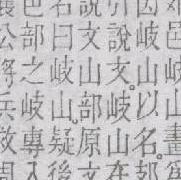 邑岐山畫
因岐山以名
引說文岐山在
說文山部原文
名曰岐山疑後
邑部之岐專入
公將兵